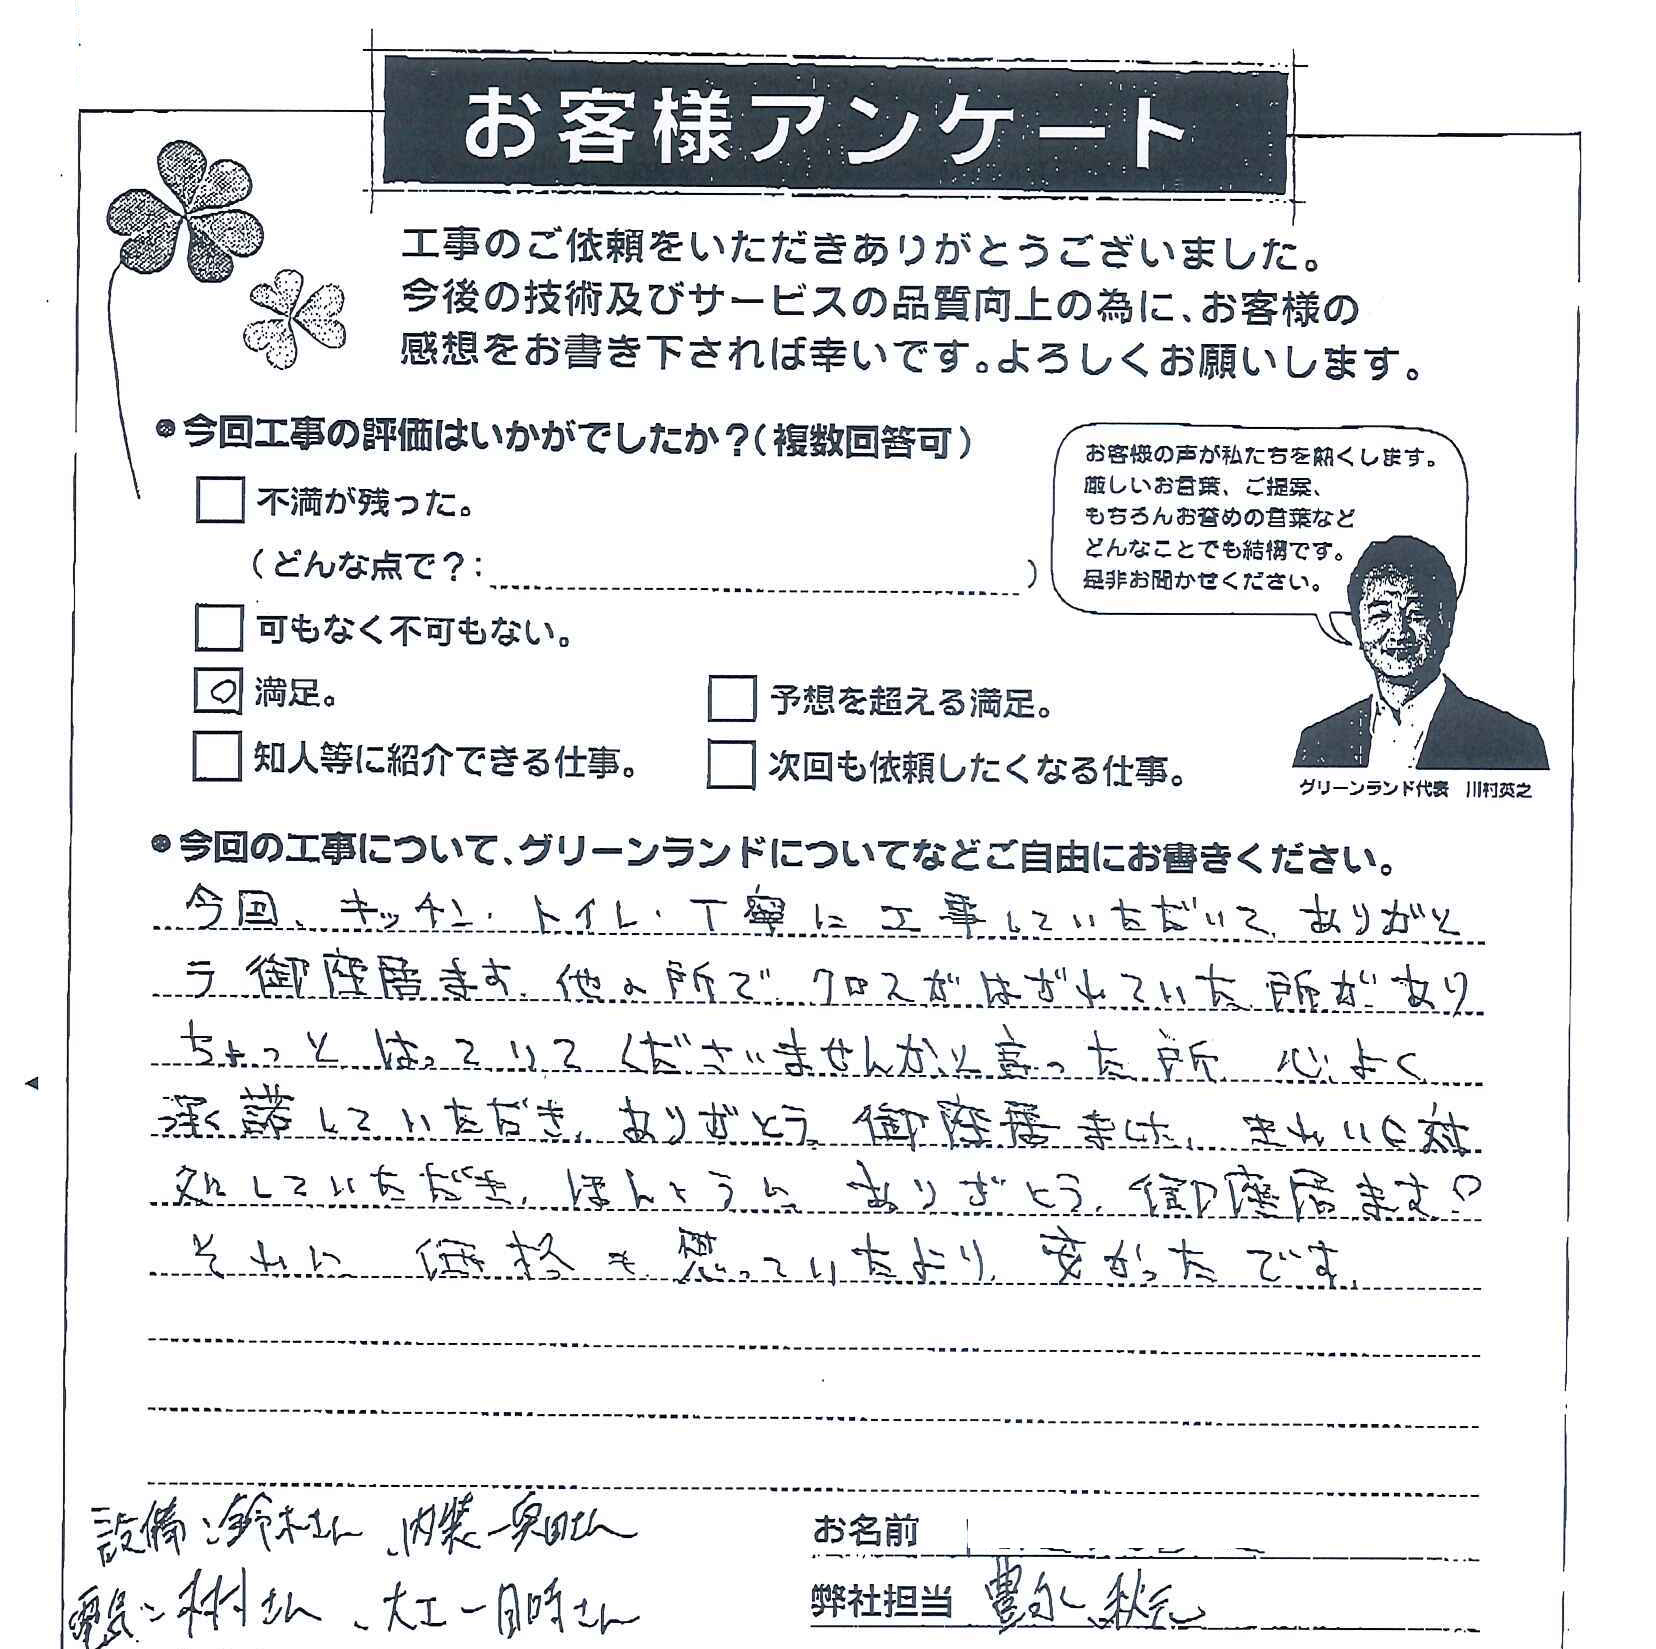 お客様アンケート
工事のご依頼をいただきありがとうございました。
今後の技術及びサービスの品質向上の為に、お客様の
感想をお書き下されば幸いです。よろしくお願いします。
●今回工事の評価はいかがでしたか?(複数回答可)
不満が残った。
(どんな点で?: )
可もなく不可もない。
○ 満足。
予想を超える満足。
知人等に紹介できる仕事。
次回も依頼したくなる仕事。
お客様の声が私たちを熱くします。
厳しいお言葉、ご提案、
もちろんお誉めの言葉など
どんなことでも結構です。
是非お聞かせください。
グリーンランド代表 川村英之
●今回の工事について、グリーンランドについてなどご自由にお書きください。
今回、キッチン・トイレ・丁寧に工事していただいて、ありがと
う御座居ます。他の所で、クロスがはがれていた所があり
ちょっとはってりてくださいませんかと言った所、心よく
承諾していただき、ありがとう御座居ました、きれいに対
処していただき、ほんとうに、ありがとう、御座居ます♡
それに価格も思っていたより、安かったです。
設備:鈴木さん、内装-奥田さん
電気:木村さん、大工-目時さん
お名前
弊社担当 豊永、秋元